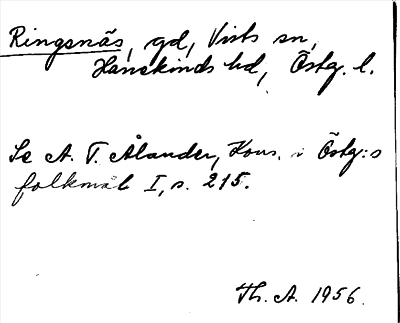 Ringsnäs, gd, Vists sn,
Hanekinds hd, Östg. l.
Se A. T. Ålander, Kons. i Östg:s
folkmål I, s. 215.
Th. A. 1956.